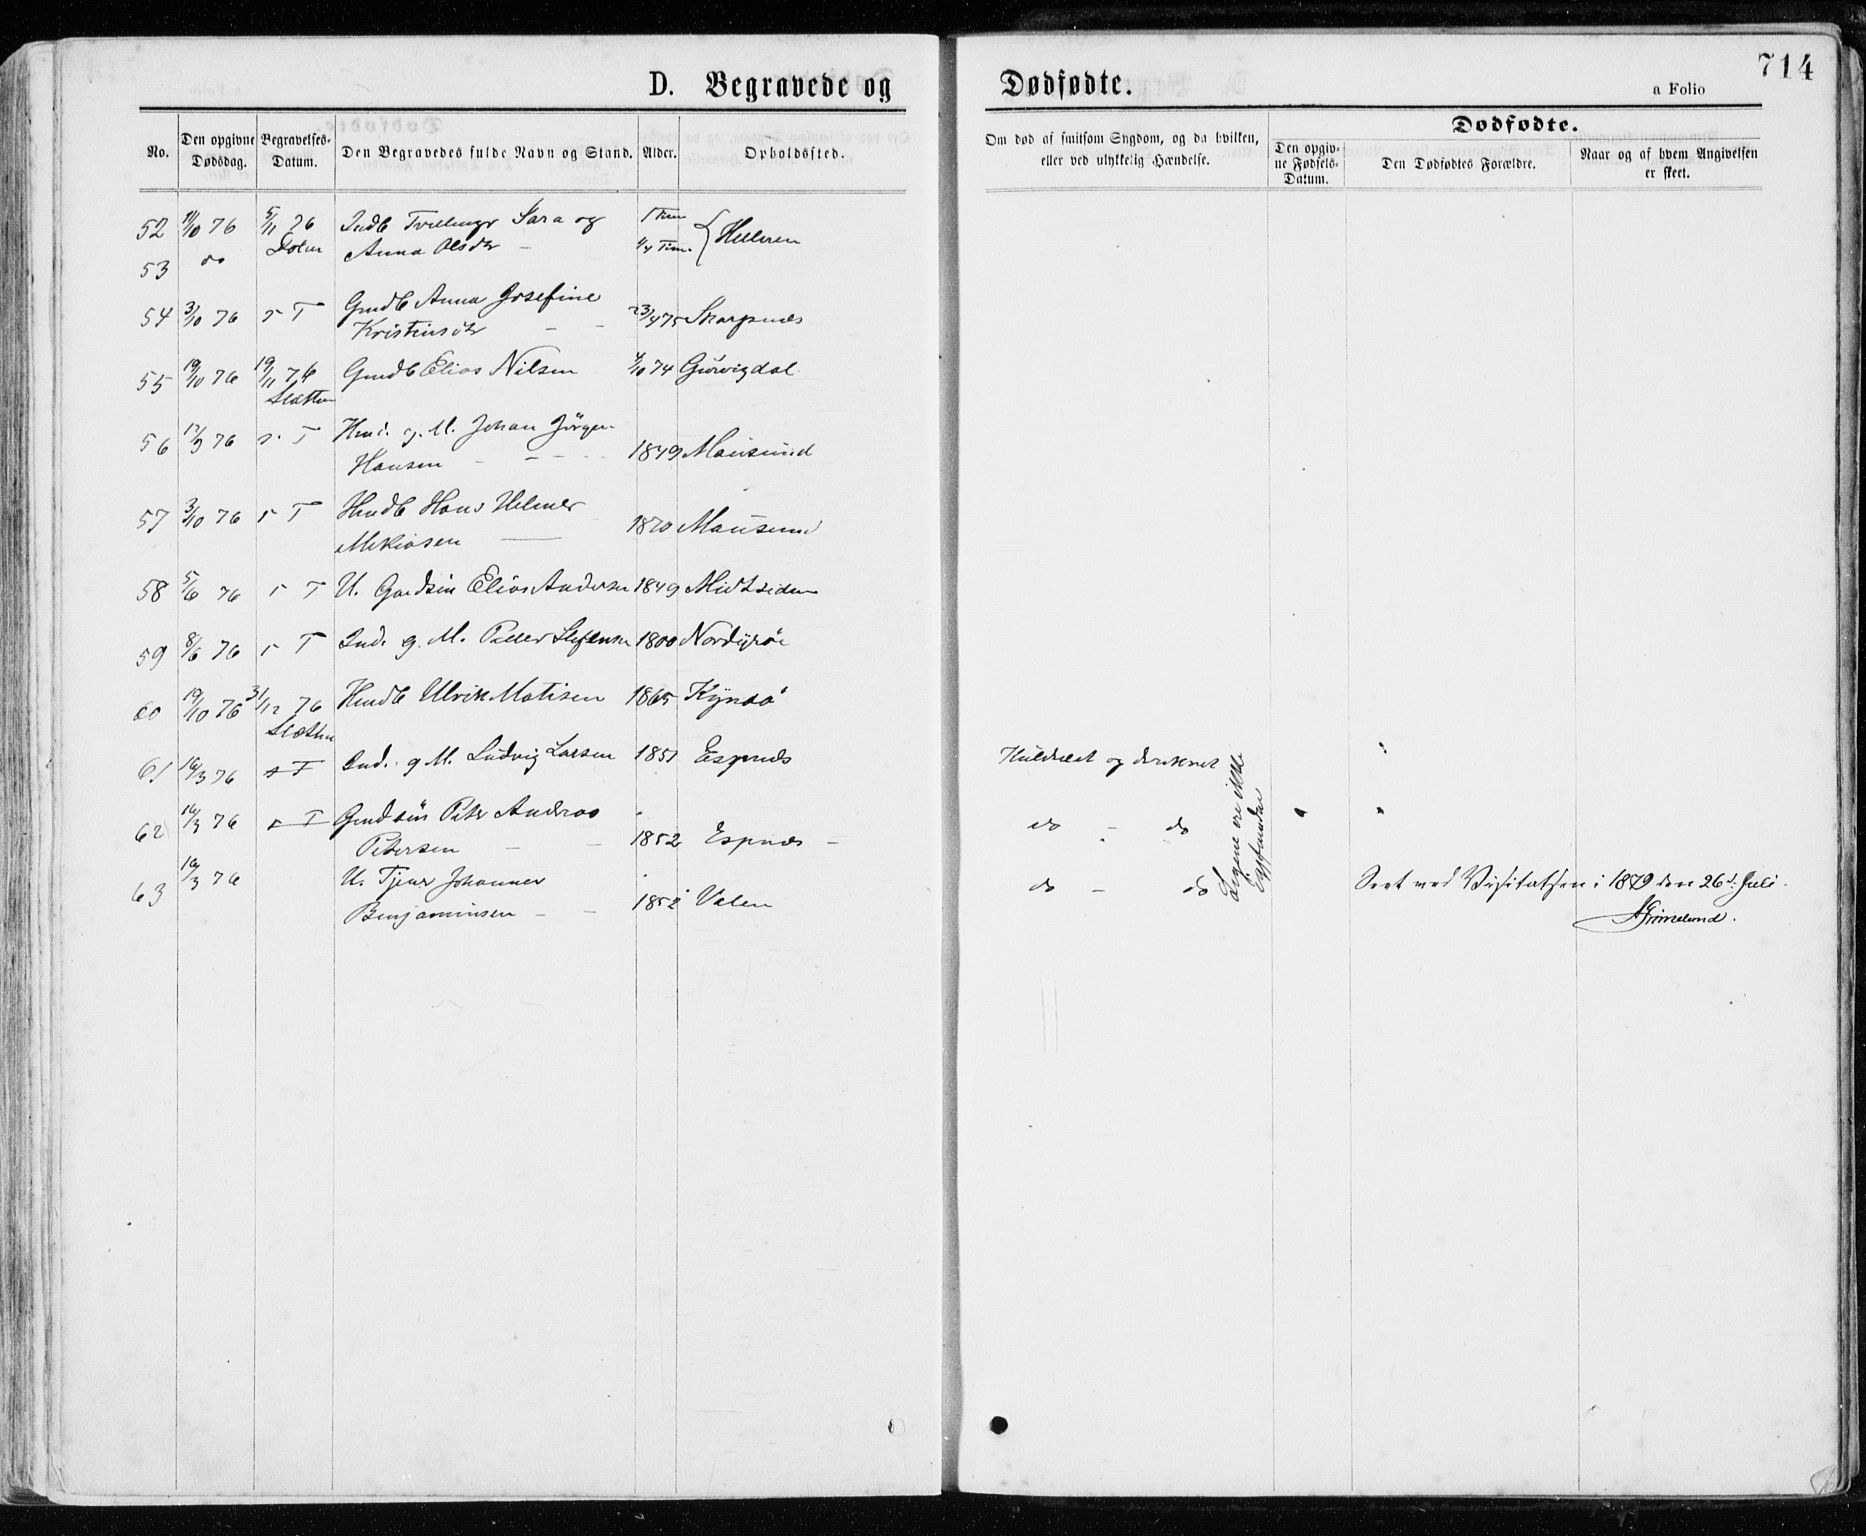 714
D. Begravede og Dødfødte.
a Folio
No. Den opgivne Dødsdag. Begravelses-Datum. Den Begravedes fulde Navn og Stand. Alder. Opholdssted.
Om død af smitsom Sygdom, og da hvilken, eller ved ulykkelig Hændelse.
Dødfødte.
Den opgivne Fødsels-Datum. Den Dødfødtes Forældre. Naar og af hvem Angivelsen er skeet.
52 11/10 76 5/11 76 Indb Tvillinger Sara og 1 Time
53 do Anna Olsdtr - 1/4 Time Helleren
54 3/10 76 T Gmdb Anna Josefine
Kristensdtr - - 23/4 75 Skarpnes
55 19/10 76 19/11 76 Gmdb Elias Nilsen 4/10 74 Gurvigdal
Sletten
56 17/9 76 T g. M. Johan Jörgen
Hansen - - - 1849 Mausund
57 3/10 76 T Hmdb Hans Helmer
1870 Mausund
58 5/6 76 T U. Gaardsön Elias Andersen 1849 Midtsiden
59 8/6 76 T Ind. g. M. Peder Steffensen 1800 Nordyröe
60 19/10 76 31/12 76 Hmdb Ulrik Matisen 1865 Kyndö
Sletten
61 16/3 76 T Ind. g M. Ludvig Larsen 1851 Espnes Kuldseilet og druknet
62 16/3 76 T Gmdsön Peter Andreas
Petersen - - 1852 Espnes - do - do
63 16/3 76 U. Tjener Johannes
Benjaminsen - - 1852 Valen do - do
Ligene ere ikke
opfundne
Seet ved Visitatsen i 1879 den 26d. Juli.
Grimelund.